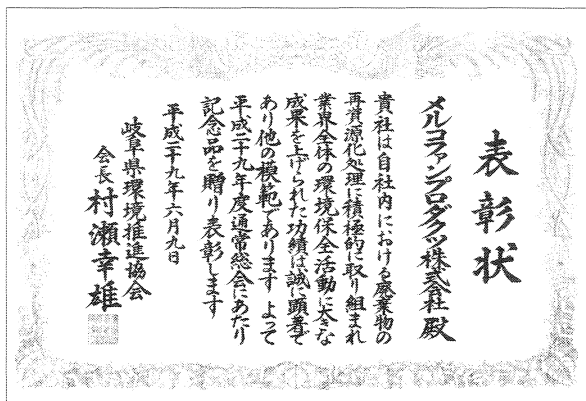 表彰状
メルコファンプロダクツ株式会社 殿
貴社は自社内における廃棄物の
再資源化処理に積極的に取り組まれ
業界全体の環境保全活動に大きな
成果を上げられた功績は誠に顕著で
あり他の模範であります よって
平成二十九年度通常総会にあたり
記念品を贈り表彰します
平成二十九年六月九日
岐阜県環境推進協会
会長 村瀬幸雄